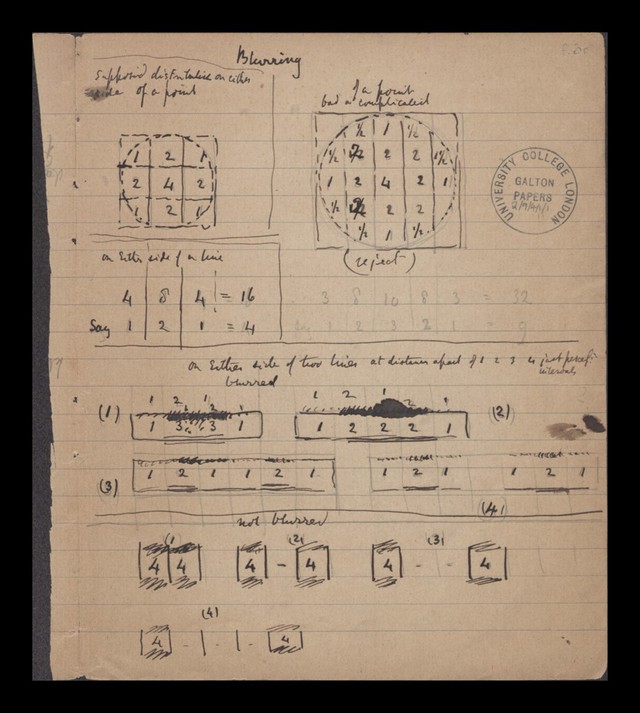 Blurring
Supposed distributed on either
side of a point
of a point
but a complicated
1 2 1
2 4 2
1 2 1
½ 1 ½
½ 2 2 2 ½
1 2 4 2 1
½ 2 2 2
½ 1 ½
(reject)
UNIVERSITY COLLEGE LONDON
GALTON
PAPERS
on Either side of a line
4 8 4 = 16
Say 1 2 1 = 4
3 8 10 8 3 = 32
Say 1 2 3 2 1 = 9
on Either side of two lines at distances apart of 1 2 3 4 just percep.
intervals
blurred
1 2 1
1 2 1
(1) 1 3 3 1
1 2 2 2 1 (2)
(3) 1 2 1 1 2 1
1 2 1 1 2 1
(4)
not blurred
(1) (2) (3)
4 4 4 - 4 4 - - 4
(4)
4 - | - | - 4